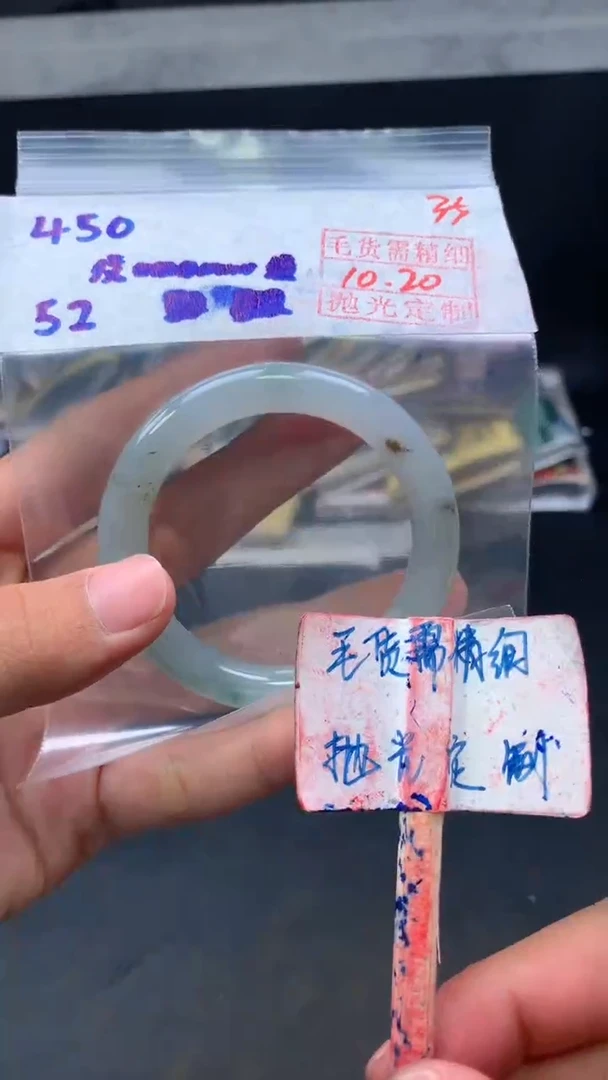 450
35
毛货需精细
10.20
抛光定制
皮
52
毛货需精细
抛光定制